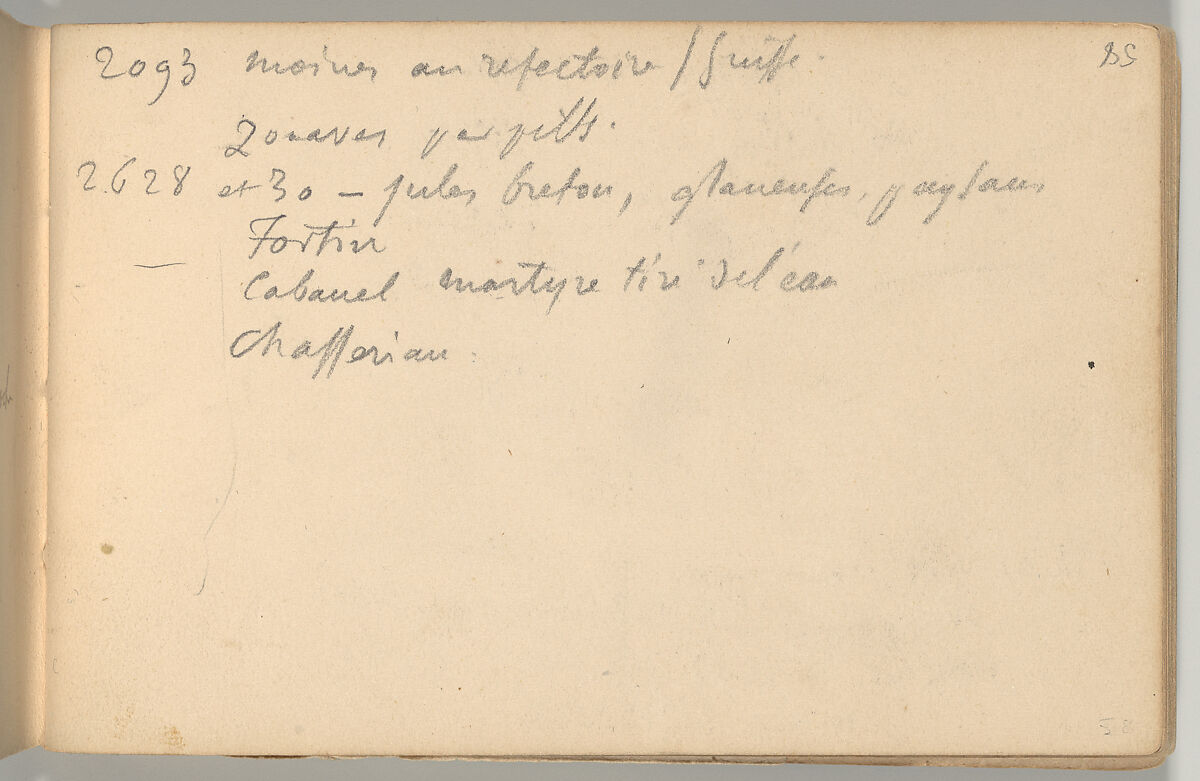 2093 moines au refectoire /
Zouaves par pills.
2628 et 30 — jules breton, glaneuses, paysans
Fortin
Cabanel martyre tiré del'eau
Chasseriau.
58